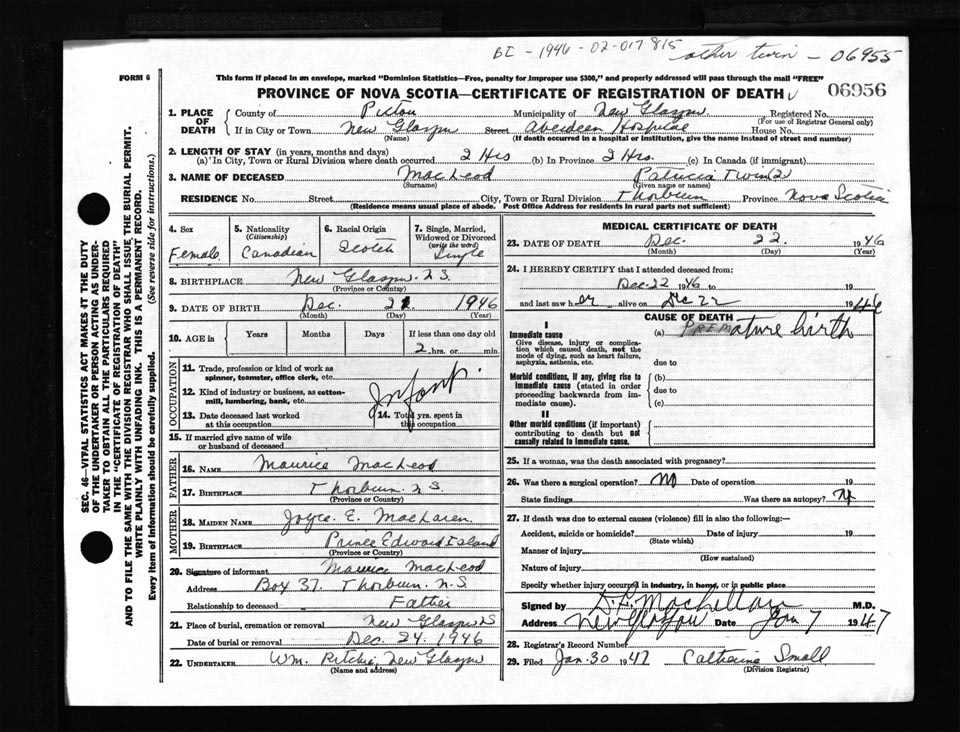 BI - 1946 - 02-017815
other twin - 06955
FORM 6
This form if placed in an envelope, marked "Dominion Statistics—Free, penalty for improper use $300," and properly addressed will pass through the mail "FREE"
PROVINCE OF NOVA SCOTIA—CERTIFICATE OF REGISTRATION OF DEATH
06956
1. PLACE OF DEATH
County of Pictou Municipality of New Glasgow Registered No.
(For use of Registrar General only)
If in City or Town New Glasgow Street Aberdeen Hospital House No.
(Name) (If death occurred in a hospital or institution, give the name instead of street and number)
2. LENGTH OF STAY (in years, months and days)
(a) In City, Town or Rural Division where death occurred 2 Hrs (b) In Province 2 Hrs. (c) In Canada (if immigrant)
3. NAME OF DECEASED MacLeod Patricia Twin (2)
(Surname) (Given name or names)
RESIDENCE No. Street City, Town or Rural Division Thorburn Province Nova Scotia
(Residence means usual place of abode. Post Office Address for residents in rural parts not sufficient)
4. Sex Female
5. Nationality (Citizenship) Canadian
6. Racial Origin Scotch
7. Single, Married, Widowed or Divorced (write the word) Single
8. BIRTHPLACE New Glasgow. N S.
(Province or Country)
9. DATE OF BIRTH Dec. 1946
(Month) (Day) (Year)
10. AGE in Years Months Days If less than one day old
2 hrs. or min.
OCCUPATION
11. Trade, profession or kind of work as spinner, teamster, office clerk, etc.
12. Kind of industry or business, as cotton-mill, lumbering, bank, etc.
Infant.
13. Date deceased last worked at this occupation
14. Total yrs. spent in this occupation
15. If married give name of wife or husband of deceased
FATHER
16. NAME Maurice MacLeod
17. BIRTHPLACE Thorburn. N S.
(Province or Country)
MOTHER
18. MAIDEN NAME Joyce. E. MacLaren
19. BIRTHPLACE Prince Edward Island
(Province or Country)
20. Signature of informant Maurice MacLeod
Address Box 37. Thorburn. N.S
Relationship to deceased Father
21. Place of burial, cremation or removal New Glasgow NS
Date of burial or removal Dec. 24. 1946
22. UNDERTAKER Wm. Ritchie, New Glasgow
(Name and address)
MEDICAL CERTIFICATE OF DEATH
23. DATE OF DEATH Dec. 22. 1946
(Month) (Day) (Year)
24. I HEREBY CERTIFY that I attended deceased from:
Dec 22 1946 to 19
and last saw her alive on Dec 22 1946
CAUSE OF DEATH
I
Immediate cause
Give disease, injury or complication which caused death, not the mode of dying, such as heart failure, asphyxia, asthenia, etc.
(a) PREMature birth
due to
Morbid conditions, if any, giving rise to immediate cause (stated in order proceeding backwards from immediate cause).
(b)
due to
(c)
II
Other morbid conditions (if important) contributing to death but not causally related to immediate cause.
25. If a woman, was the death associated with pregnancy?
26. Was there a surgical operation? No Date of operation 19
State findings Was there an autopsy?
27. If death was due to external causes (violence) fill in also the following:—
Accident, suicide or homicide? Date of injury 19
(State which)
Manner of injury
(How sustained)
Nature of injury
Specify whether injury occurred in industry, in home, or in public place
Signed by D. L. MacLellan M.D.
Address New Glasgow Date Jan 7 1947
28. Registrar's Record Number
29. Filed Jan. 30 1947 Catherine Small
(Division Registrar)
SEC. 46—VITAL STATISTICS ACT MAKES AT THE DUTY
OF THE UNDERTAKER OR PERSON ACTING AS UNDER-
TAKER TO OBTAIN ALL THE PARTICULARS REQUIRED
IN THE "CERTIFICATE OF REGISTRATION OF DEATH"
AND TO FILE THE SAME WITH THE DIVISION REGISTRAR WHO SHALL ISSUE THE BURIAL PERMIT.
WRITE PLAINLY WITH UNFADING INK. THIS IS A PERMANENT RECORD.
Every item of information should be carefully supplied. (See reverse side for instructions.)